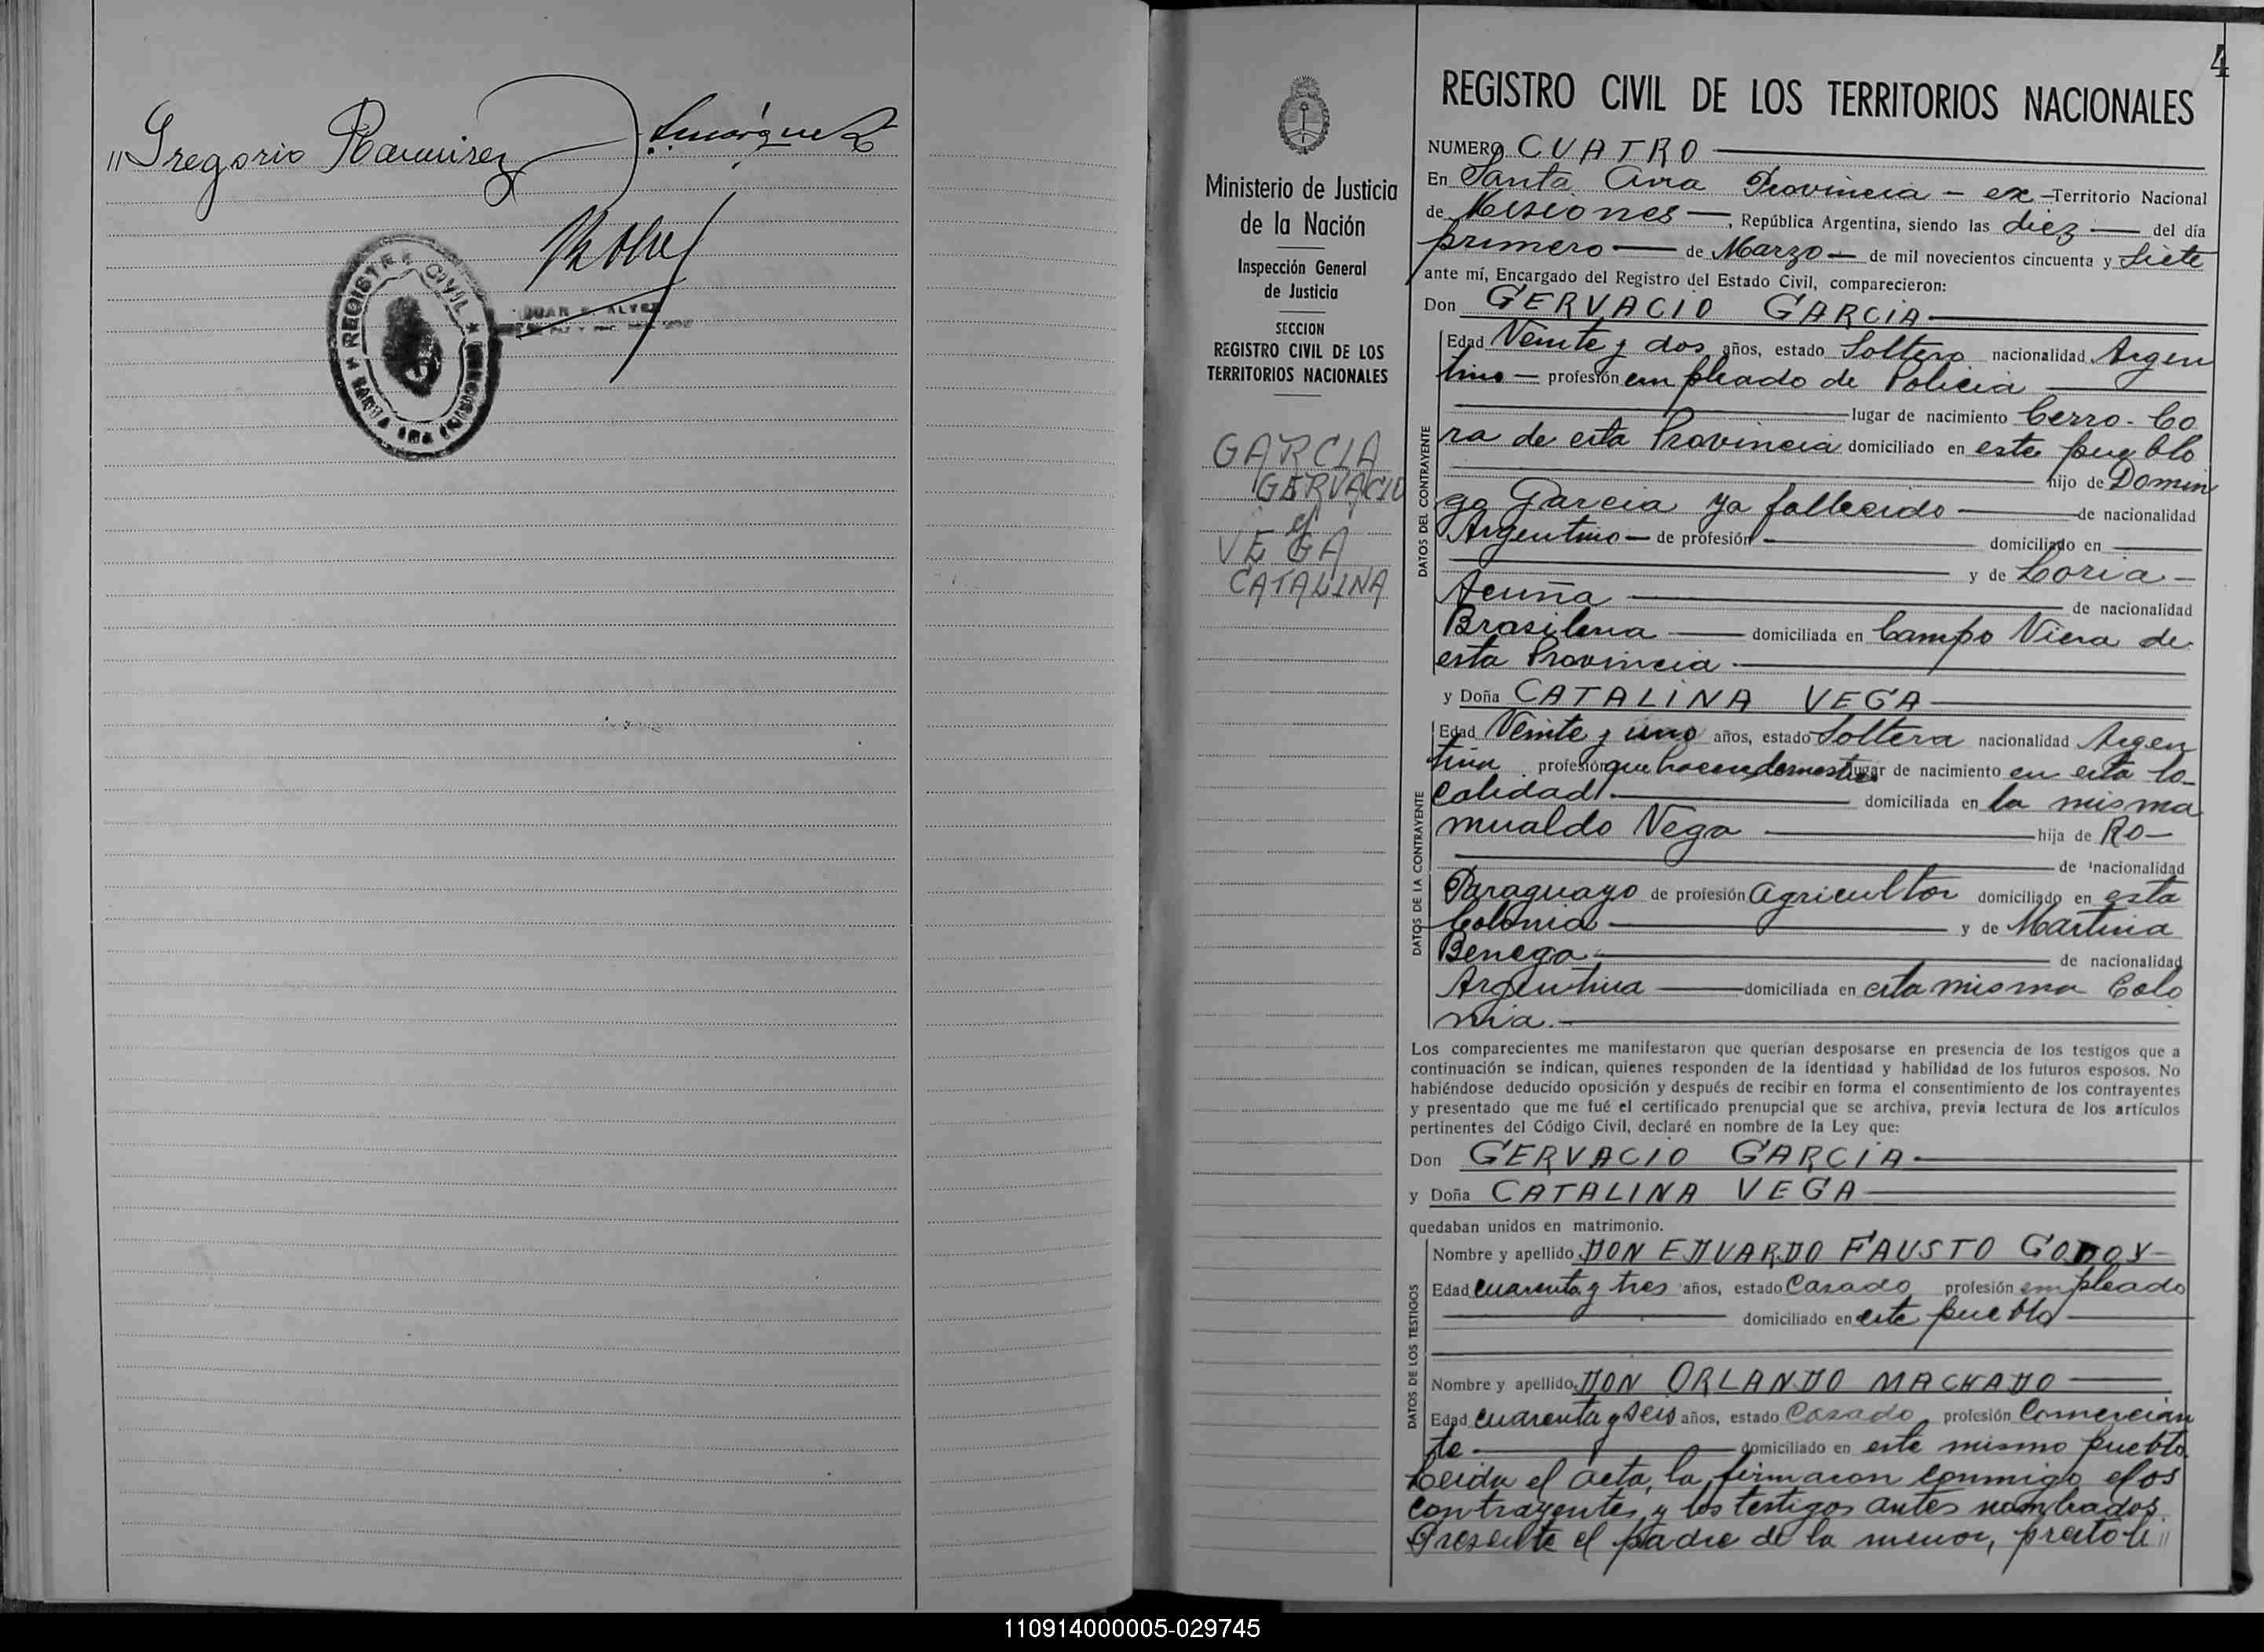 "Gregorio Ramirez
REGISTRO CIVIL
JUAN ALVEZ
4
REGISTRO CIVIL DE LOS TERRITORIOS NACIONALES
Ministerio de Justicia
de la Nación
Inspección General
de Justicia
SECCION
REGISTRO CIVIL DE LOS
TERRITORIOS NACIONALES
GARCIA
GERVACIO
y
VEGA
CATALINA
NUMERO CUATRO
En Santa Ana Provincia - ex-Territorio Nacional
de Misiones, República Argentina, siendo las diez del día
primero de Marzo de mil novecientos cincuenta y siete
ante mí, Encargado del Registro del Estado Civil, comparecieron:
Don GERVACIO GARCIA
DATOS DEL CONTRAYENTE
Edad Veinte y dos años, estado Soltero nacionalidad Argen
tino profesión empleado de Policia
lugar de nacimiento Cerro-Co
ra de esta Provincia domiciliado en este pueblo
hijo de Domin
go Garcia ya fallecido de nacionalidad
Argentino de profesión domiciliado en
y de Loria
Acuña de nacionalidad
Brasilena domiciliada en Campo Viera de
esta Provincia
y Doña CATALINA VEGA
DATOS DE LA CONTRAYENTE
Edad Veinte y uno años, estado Soltera nacionalidad Argen
tina profesión que haceres domesticos lugar de nacimiento en esta lo-
calidad domiciliada en la misma
mualdo Vega hija de Ro-
de nacionalidad
Paraguayo de profesión agricultor domiciliado en esta
Colonia y de Martina
Benega de nacionalidad
Argentina domiciliada en esta misma Colo
nia.
Los comparecientes me manifestaron que querían desposarse en presencia de los testigos que a
continuación se indican, quienes responden de la identidad y habilidad de los futuros esposos. No
habiéndose deducido oposición y después de recibir en forma el consentimiento de los contrayentes
y presentado que me fué el certificado prenupcial que se archiva, previa lectura de los artículos
pertinentes del Código Civil, declaré en nombre de la Ley que:
Don GERVACIO GARCIA
y Doña CATALINA VEGA
quedaban unidos en matrimonio.
DATOS DE LOS TESTIGOS
Nombre y apellido DON EDUARDO FAUSTO GODOY
Edad cuarenta y tres años, estado Casado profesión empleado
domiciliado en este pueblo
Nombre y apellido DON ORLANDO MACHADO
Edad cuarenta y seis años, estado Casado profesión Comercian
te domiciliado en este mismo pueblo.
Leida el acta, la firmaron conmigo, los
contrayentes y los testigos antes nombrados.
Presente el padre de la menor, presto li"
110914000005-029745